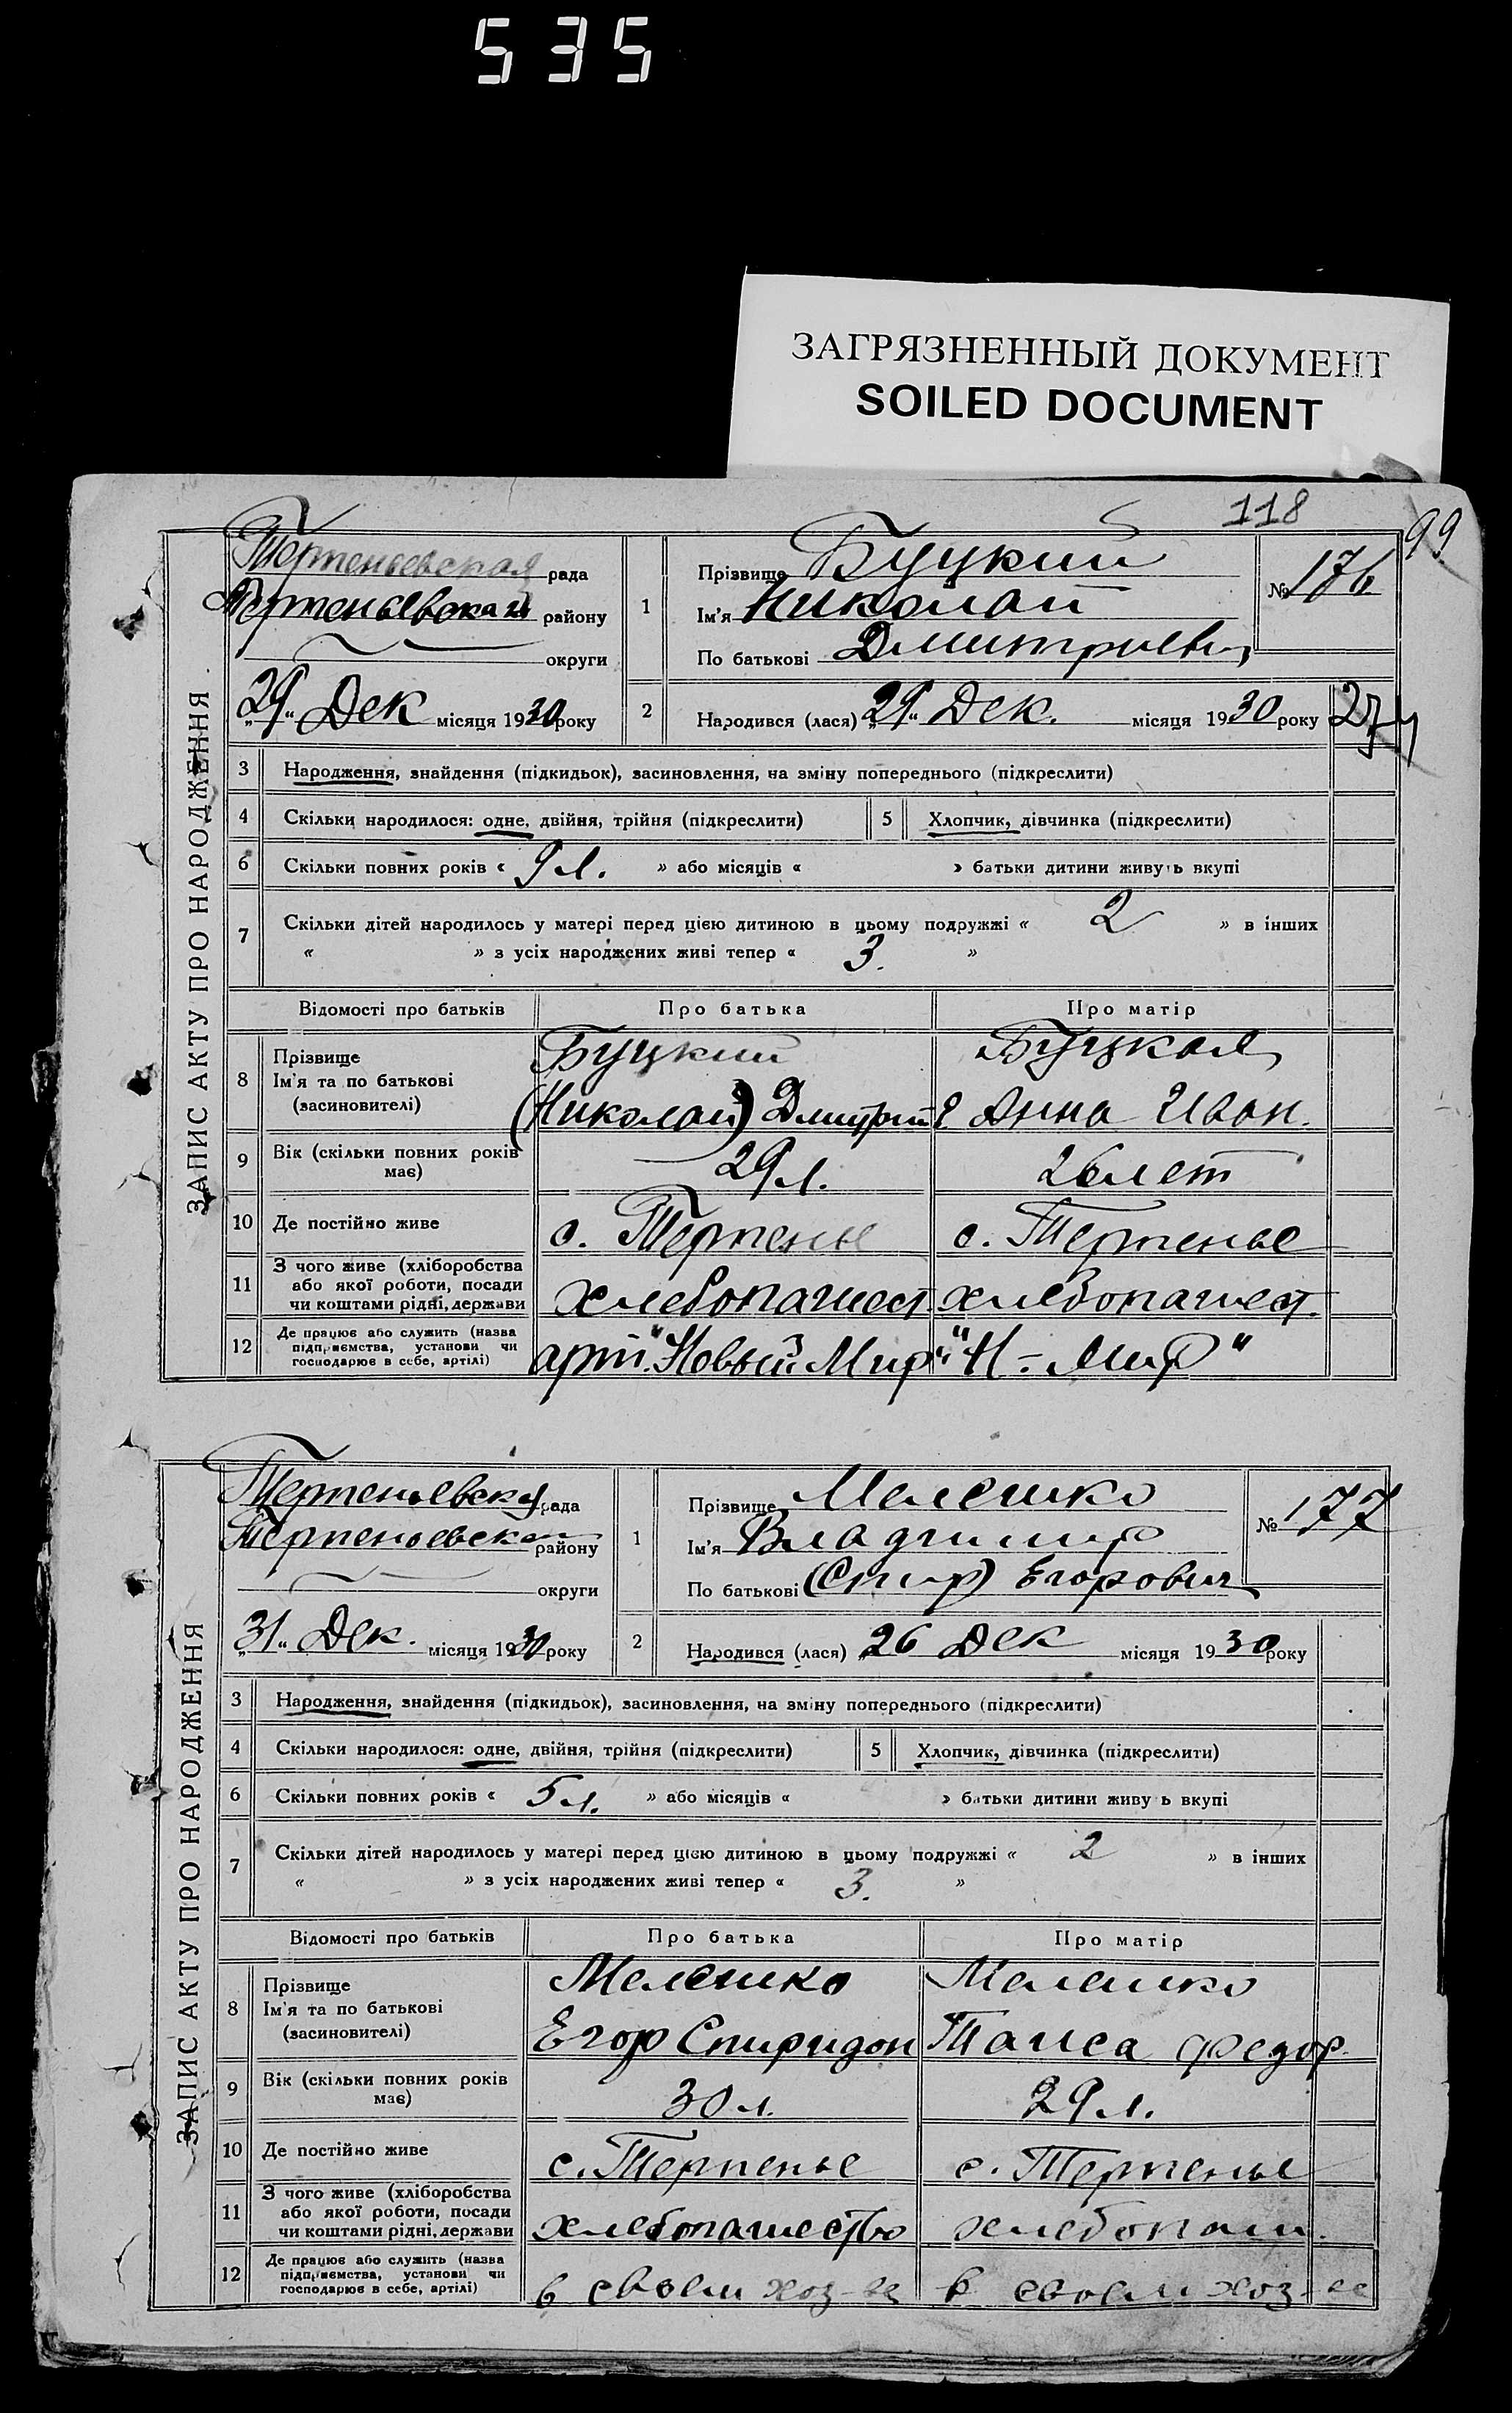 535
ЗАГРЯЗНЕННЫЙ ДОКУМЕНТ
SOILED DOCUMENT
118
99
ЗАПИС АКТУ ПРО НАРОДЖЕННЯ
Терпеньевская рада
Терпеньевская району
округи
„29“ Дек місяця 1930 року
1
Прізвище Буцкий
Ім'я Николай
По батькові Дмитриевич
№ 176
2
Народився (лася) „29“ Дек. місяця 1930 року
274
3 Народження, знайдення (підкидьок), засиновлення, на зміну попереднього (підкреслити)
4 Скільки народилося: одне, двійня, трійня (підкреслити) 5 Хлопчик, дівчинка (підкреслити)
6 Скільки повних років « 9 л. » або місяців « » батьки дитини живуть вкупі
7 Скільки дітей народилось у матері перед цією дитиною в цьому подружжі « 2 » в інших
« » з усіх народжених живі тепер « 3. »
Відомості про батьків Про батька Про матір
8 Прізвище Буцкий Буцкая
Ім'я та по батькові
(засиновителі) (Николай) Дмитрий Анна Иван.
9 Вік (скільки повних років має) 29 л. 26 лет
10 Де постійно живе с. Терпенье с. Терпенье
11 З чого живе (хліборобства
або якої роботи, посади
чи коштами рідні, держави хлебопашест. хлебопашест.
12 Де працює або служить (назва
підприємства, установи чи
господарює в себе, артілі) арт. "Новый Мир" "Н-Мир"
ЗАПИС АКТУ ПРО НАРОДЖЕННЯ
Терпеньевская рада
Терпеньевская району
округи
„31“ Дек. місяця 1930 року
1
Прізвище Мелешко
Ім'я Владимир
По батькові (Спир) Егорович
№ 177
2
Народився (лася) „26 Дек місяця 1930 року
3 Народження, знайдення (підкидьок), засиновлення, на зміну попереднього (підкреслити)
4 Скільки народилося: одне, двійня, трійня (підкреслити) 5 Хлопчик, дівчинка (підкреслити)
6 Скільки повних років « 5 л. » або місяців « » батьки дитини живу ь вкупі
7 Скільки дітей народилось у матері перед цією дитиною в цьому подружжі « 2 » в інших
« » з усіх народжених живі тепер « 3. »
Відомості про батьків Про батька Про матір
8 Прізвище Мелешко Мелешко
Ім'я та по батькові
(засиновителі) Егор Спиридон Таиса Федор.
9 Вік (скільки повних років має) 30 л. 29 л.
10 Де постійно живе с. Терпенье с. Терпенье
11 З чого живе (хліборобства
або якої роботи, посади
чи коштами рідні, держави хлебопашество хлебопаш.
12 Де працює або служить (назва
підприємства, установи чи
господарює в себе, артілі) в своем хоз-ве в своем хоз-ве